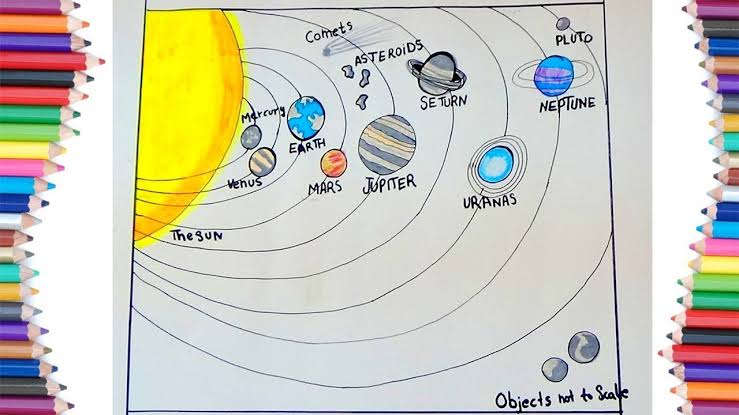 Comets
PLUTO
ASTEROIDS
SETURN
NEPTUNE
Mercury
EARTH
Venus
MARS
JUPITER
URANAS
The SUN
Objects not to Scale